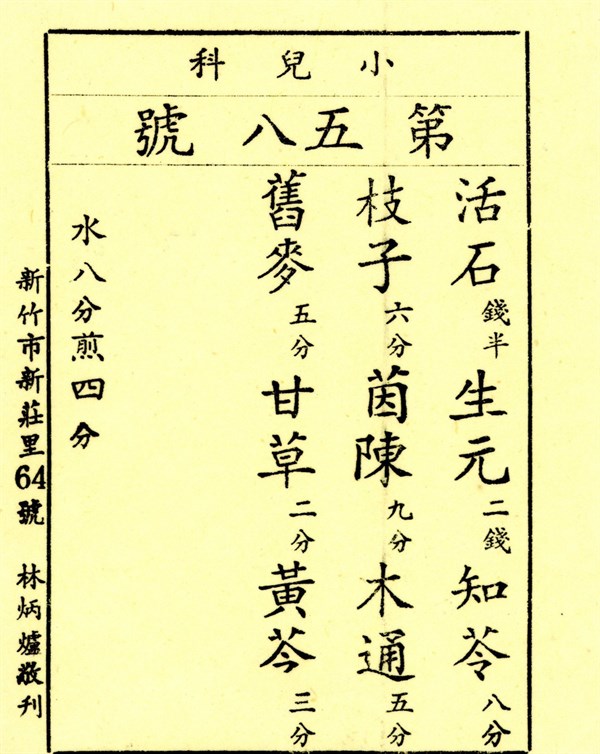 小兒科
第五八號
活石錢半生元二錢知苓八分
枝子六分茵陳九分木通五分
舊麥五分甘草二分黃芩三分
水八分煎四分
新竹市新莊里64號 林炳爐敬刊